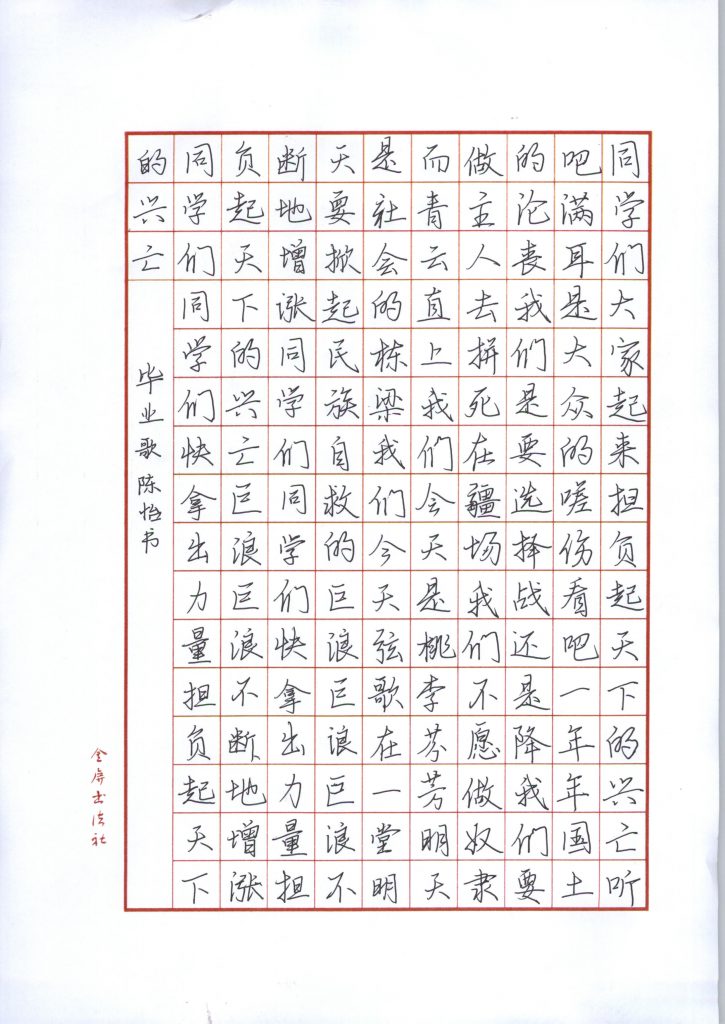 同学们大家起来担负起天下的兴亡听
吧满耳是大众的嗟伤看吧一年年国土
的沦丧我们是要选择战还是降我们要
做主人去拼死在疆场我们不愿做奴隶
而青云直上我们今天是桃李芬芳明天
是社会的栋梁我们今天弦歌在一堂明
天要掀起民族自救的巨浪巨浪巨浪不
断地增涨同学们同学们快拿出力量担
负起天下的兴亡巨浪巨浪不断地增涨
同学们同学们快拿出力量担负起天下
的兴亡
毕业歌 陈怡书
金屏书法社